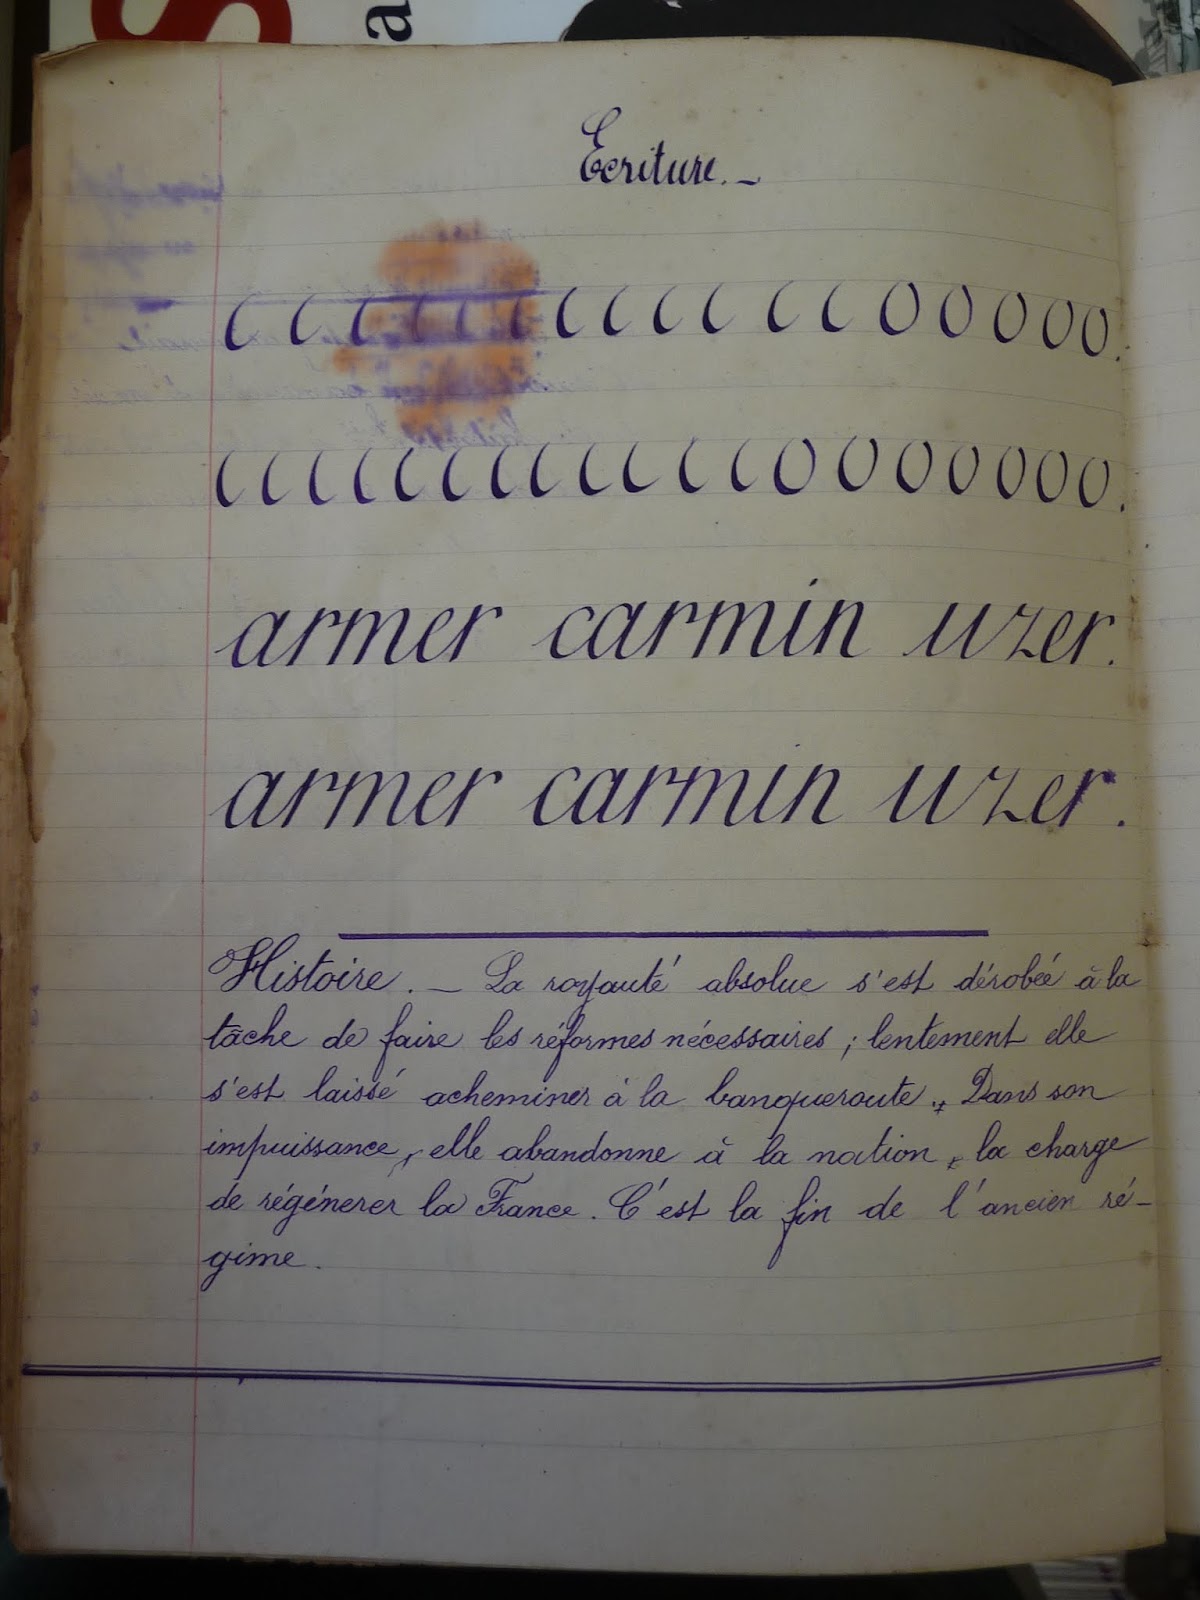 S
a
Ecriture. _
c c c c c c c c c c c c o o o o o .
c c c c c c c c c c c c o o o o o o o .
armer carmin uzer.
armer carmin uzer.
Histoire. _ La royauté absolue s'est dérobée à la
tâche de faire les réformes nécessaires ; lentement elle
s'est laissé acheminer à la banqueroute. Dans son
impuissance, elle abandonne à la nation, la charge
de régénerer la France. C'est la fin de l'ancien ré-
gime.